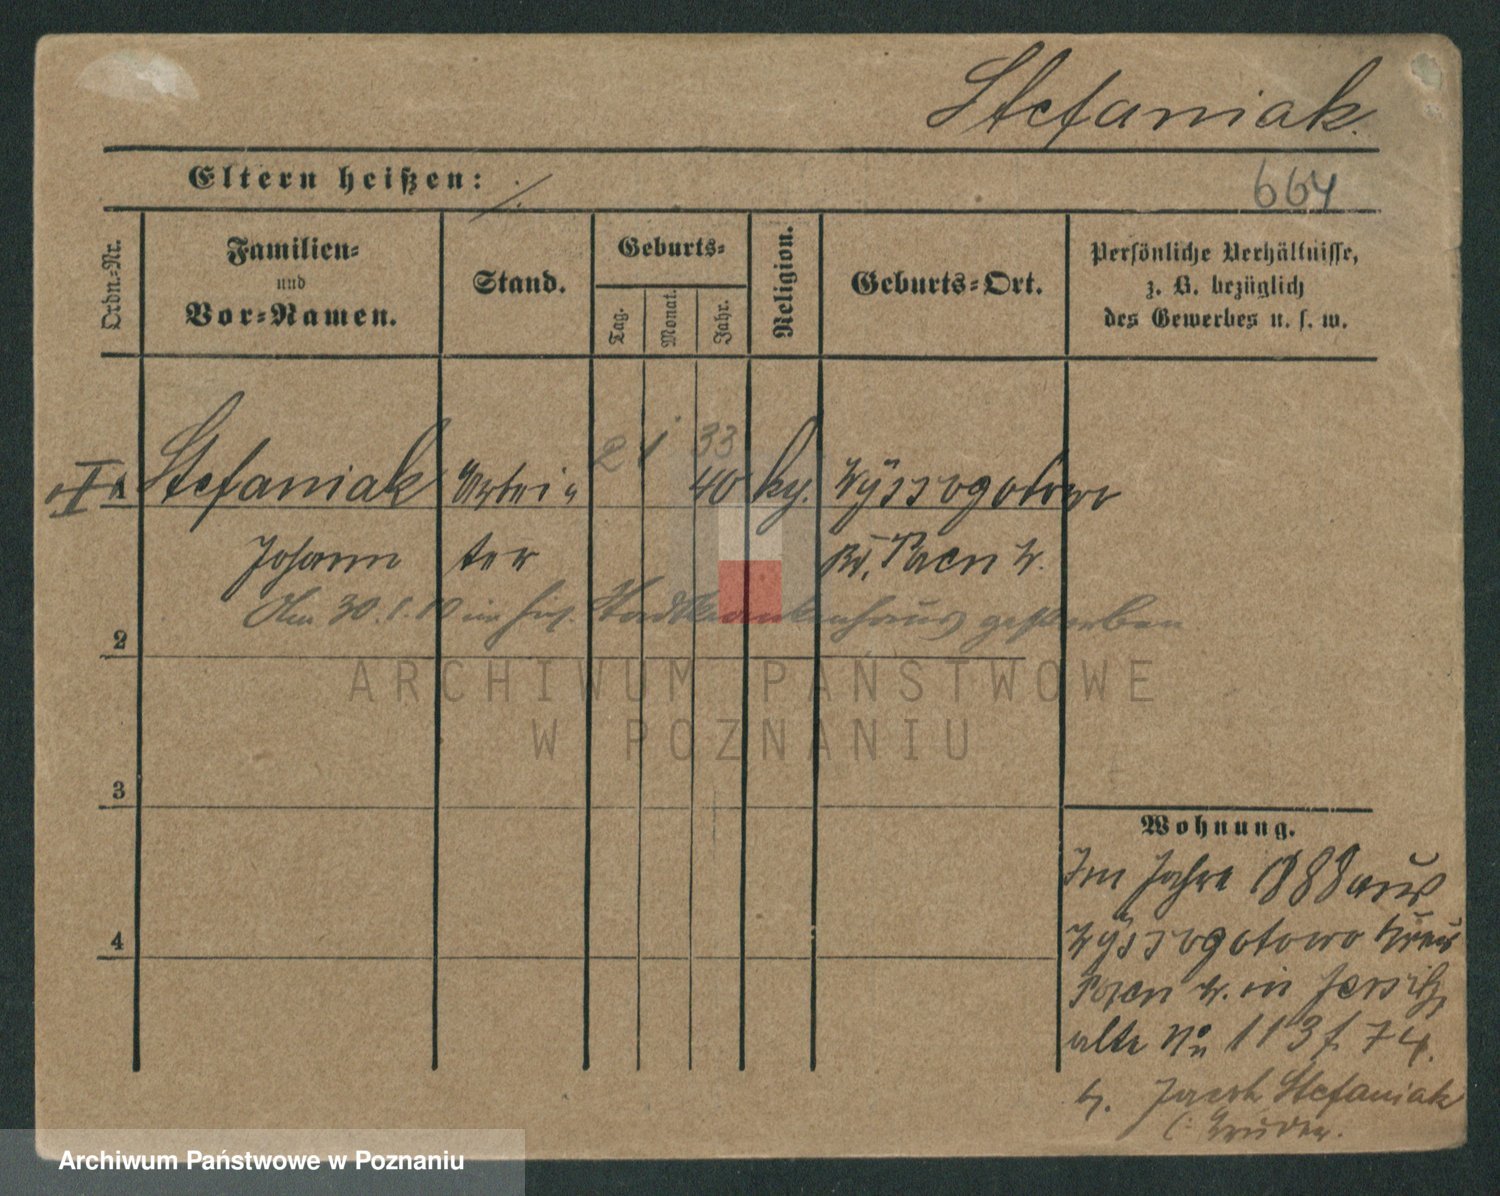 Stefaniak.
Eltern heißen: ·/.
664
Ordn.-Nr.
Familien-
und
Vor-Namen.
Stand.
Geburts-
Tag.
Monat.
Jahr.
Religion.
Geburts-Ort.
Persönliche Verhältnisse,
z. B. bezüglich
des Gewerbes u. s. w.
2 1 33
I Stefaniak Arbei- 40 kg. Wyssogotowo
Johann ter Kr. Posen W.
Am 30.1.10 im Stadtkrankenhaus gestorben
2
ARCHIWUM PAŃSTWOWE
W POZNANIU
3
Wohnung.
Im Jahre 1888 aus
Wyssogotowo Kreis
4
Posen W. in Jersitz,
alte No 113 f. 74.
b. Jacob Stefaniak
(: Bruder.
Archiwum Państwowe w Poznaniu